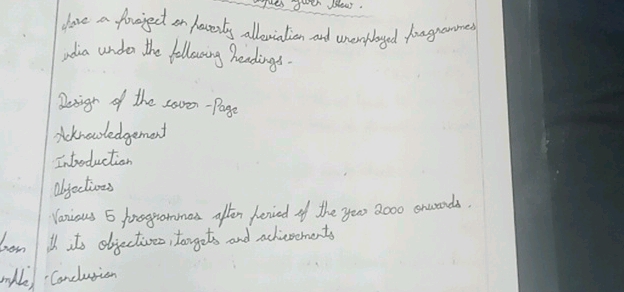 given below.
pare a project on poverty alleviation and unemployed programmes
india under the following headings -
Design of the cover - Page
Acknowledgement
Introduction
Objectives
Various 5 programmes after period of the year 2000 onwards.
th its objectives, targets and achievements
from
Conclusion